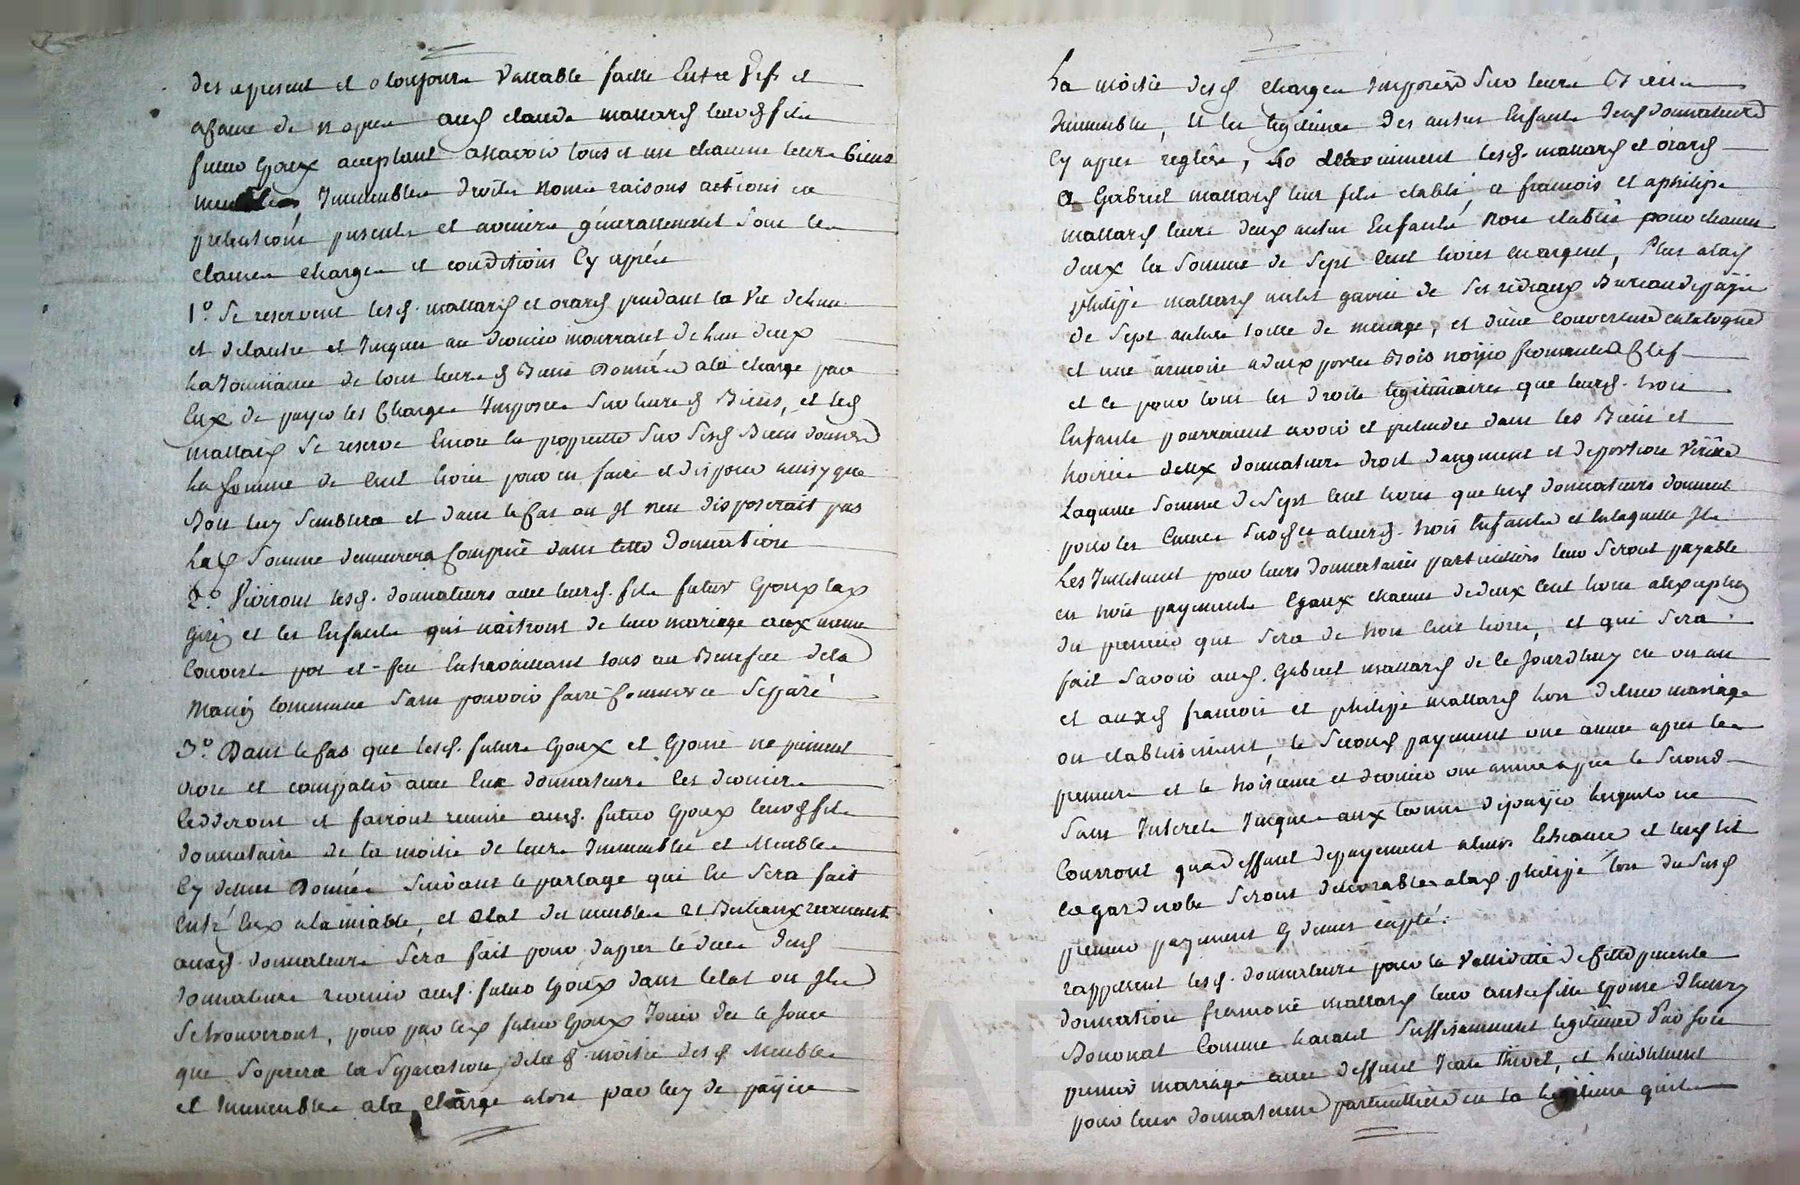 des apresent et a toujours vallable faitte Entre Vifs et
a cause de nopces aud claude mallard leurd fils
futur Epoux aceptant assavoir tous et un chacuns leurs biens
meubles Immeubles droits noms raisons actions et
pretentions presents et avenirs generallement sous les
clauses charges et conditions Cy aprés
1.° Se reservent lesd. mallard et orard pendant la Vie de lun
et de lautre et Jusques au dernier mourrant de lun deux
la Jouissance de tous leurs d Biens Donnés ala charge par
Eux de payer les Charges Imposees Sur leurs d Biens, et led
mallard Se reserve Encore la proprietté Sur Sesd Biens donnés
la somme de Cent livres pour en faire et disposer ainsy que
Bon luy Semblera et dans le Cas ou Jl nen disposerait pas
lad Somme demeurera Comprise dans cette donnation
2.° Vivront lesd. donnateurs avec leursd. fils futur Epoux
et les Enfants qui naitront de leur mariage aux meme
Couvert pot et feu En travaillant tous au Benefice de la
Maison Commune Sans pouvoir faire Commerce Separé
3.° Dans le Cas que lesd. futurs Epoux et Epouse ne puissent
vivre et compatir avec leurs donnateurs Ces derniers
Cedderont et fairont remise aud. futur Epoux leurd fils
donnataire de la moitié de leurs Immeubles et Meubles
Cy dessus Donnés Suivant le partage qui En Sera fait
Entr'Eux alamiable, et Etat des meubles et Bestiaux revenant
auxd. donnateurs Sera fait pour d'apres le deces desd
donnateurs revenir aud. futur Epoux dans letat ou Jls
Se trouveront, pour par led futur Epoux Jouir des le Jour
que Soperera la Separation de lad. moitié desd Meubles
et Immeubles ala Charge alors par luy de payer
La moitié desd charges Imposées Sur leurs Biens
Immeubles, Et les legitimes des autres Enfants desd donnateurs
Cy apres reglées, lesd. mallard et orard
a Gabriel mallard leur fils etabli, a francois et a philipe
mallard leurs deux autres Enfants, non etablis pour chacun
deux la Somme de Sept Cent livres en argent, Plus alad
philipe mallard un lit garni de Ses rideaux
de Sept aulnes toille de menage, et d'une Couverture catalogne
et une armoire a deux portes Bois noyer fermante a Clef
et Ce pour tous les droits legitimaires que leursd. trois
Enfants pourraient avoir et pretendre dans les Biens et
hoiries deux donnateurs droit daugment et de portion Virile
Laquelle Somme de Sept Cent livres que lesd donnateurs donnent
pour les Causes Susdites aleursd. trois Enfants et En laquelle Jls
Les Instituent pour leurs donnataires particuliers leur Seront payable
en trois payements Egaux chacun de deux Cent livres alexception
du premier que Sera de trois Cent livres, et qui Sera
fait Savoir aud. Gabriel mallard de Ce Jourdhuy en un an
et auxd francois et philipe mallard lors de leur mariage
ou etablissement, le Second payement une année apres le
premier et le troisieme et dernier une année apres le Second
Sans Interets Jusques aux termes de payer lesquels ne
Courront qua deffaut de payement aleurs Echeance et lesd lit
et garderobe Seront delivrables alad. philipe lors du Susd
premier payement Cy dessus cappté.
rappellent lesd. donnateurs pour la Validité de Cette presente
donnation francoise mallard leur autre fille Epouse dhenry
Bononat Comme layant Suffisamment legitimée par Son
premier mariage avec deffunt Jean Thivel, et linstituent
pour leur donnataire particulliere en la legitime quils